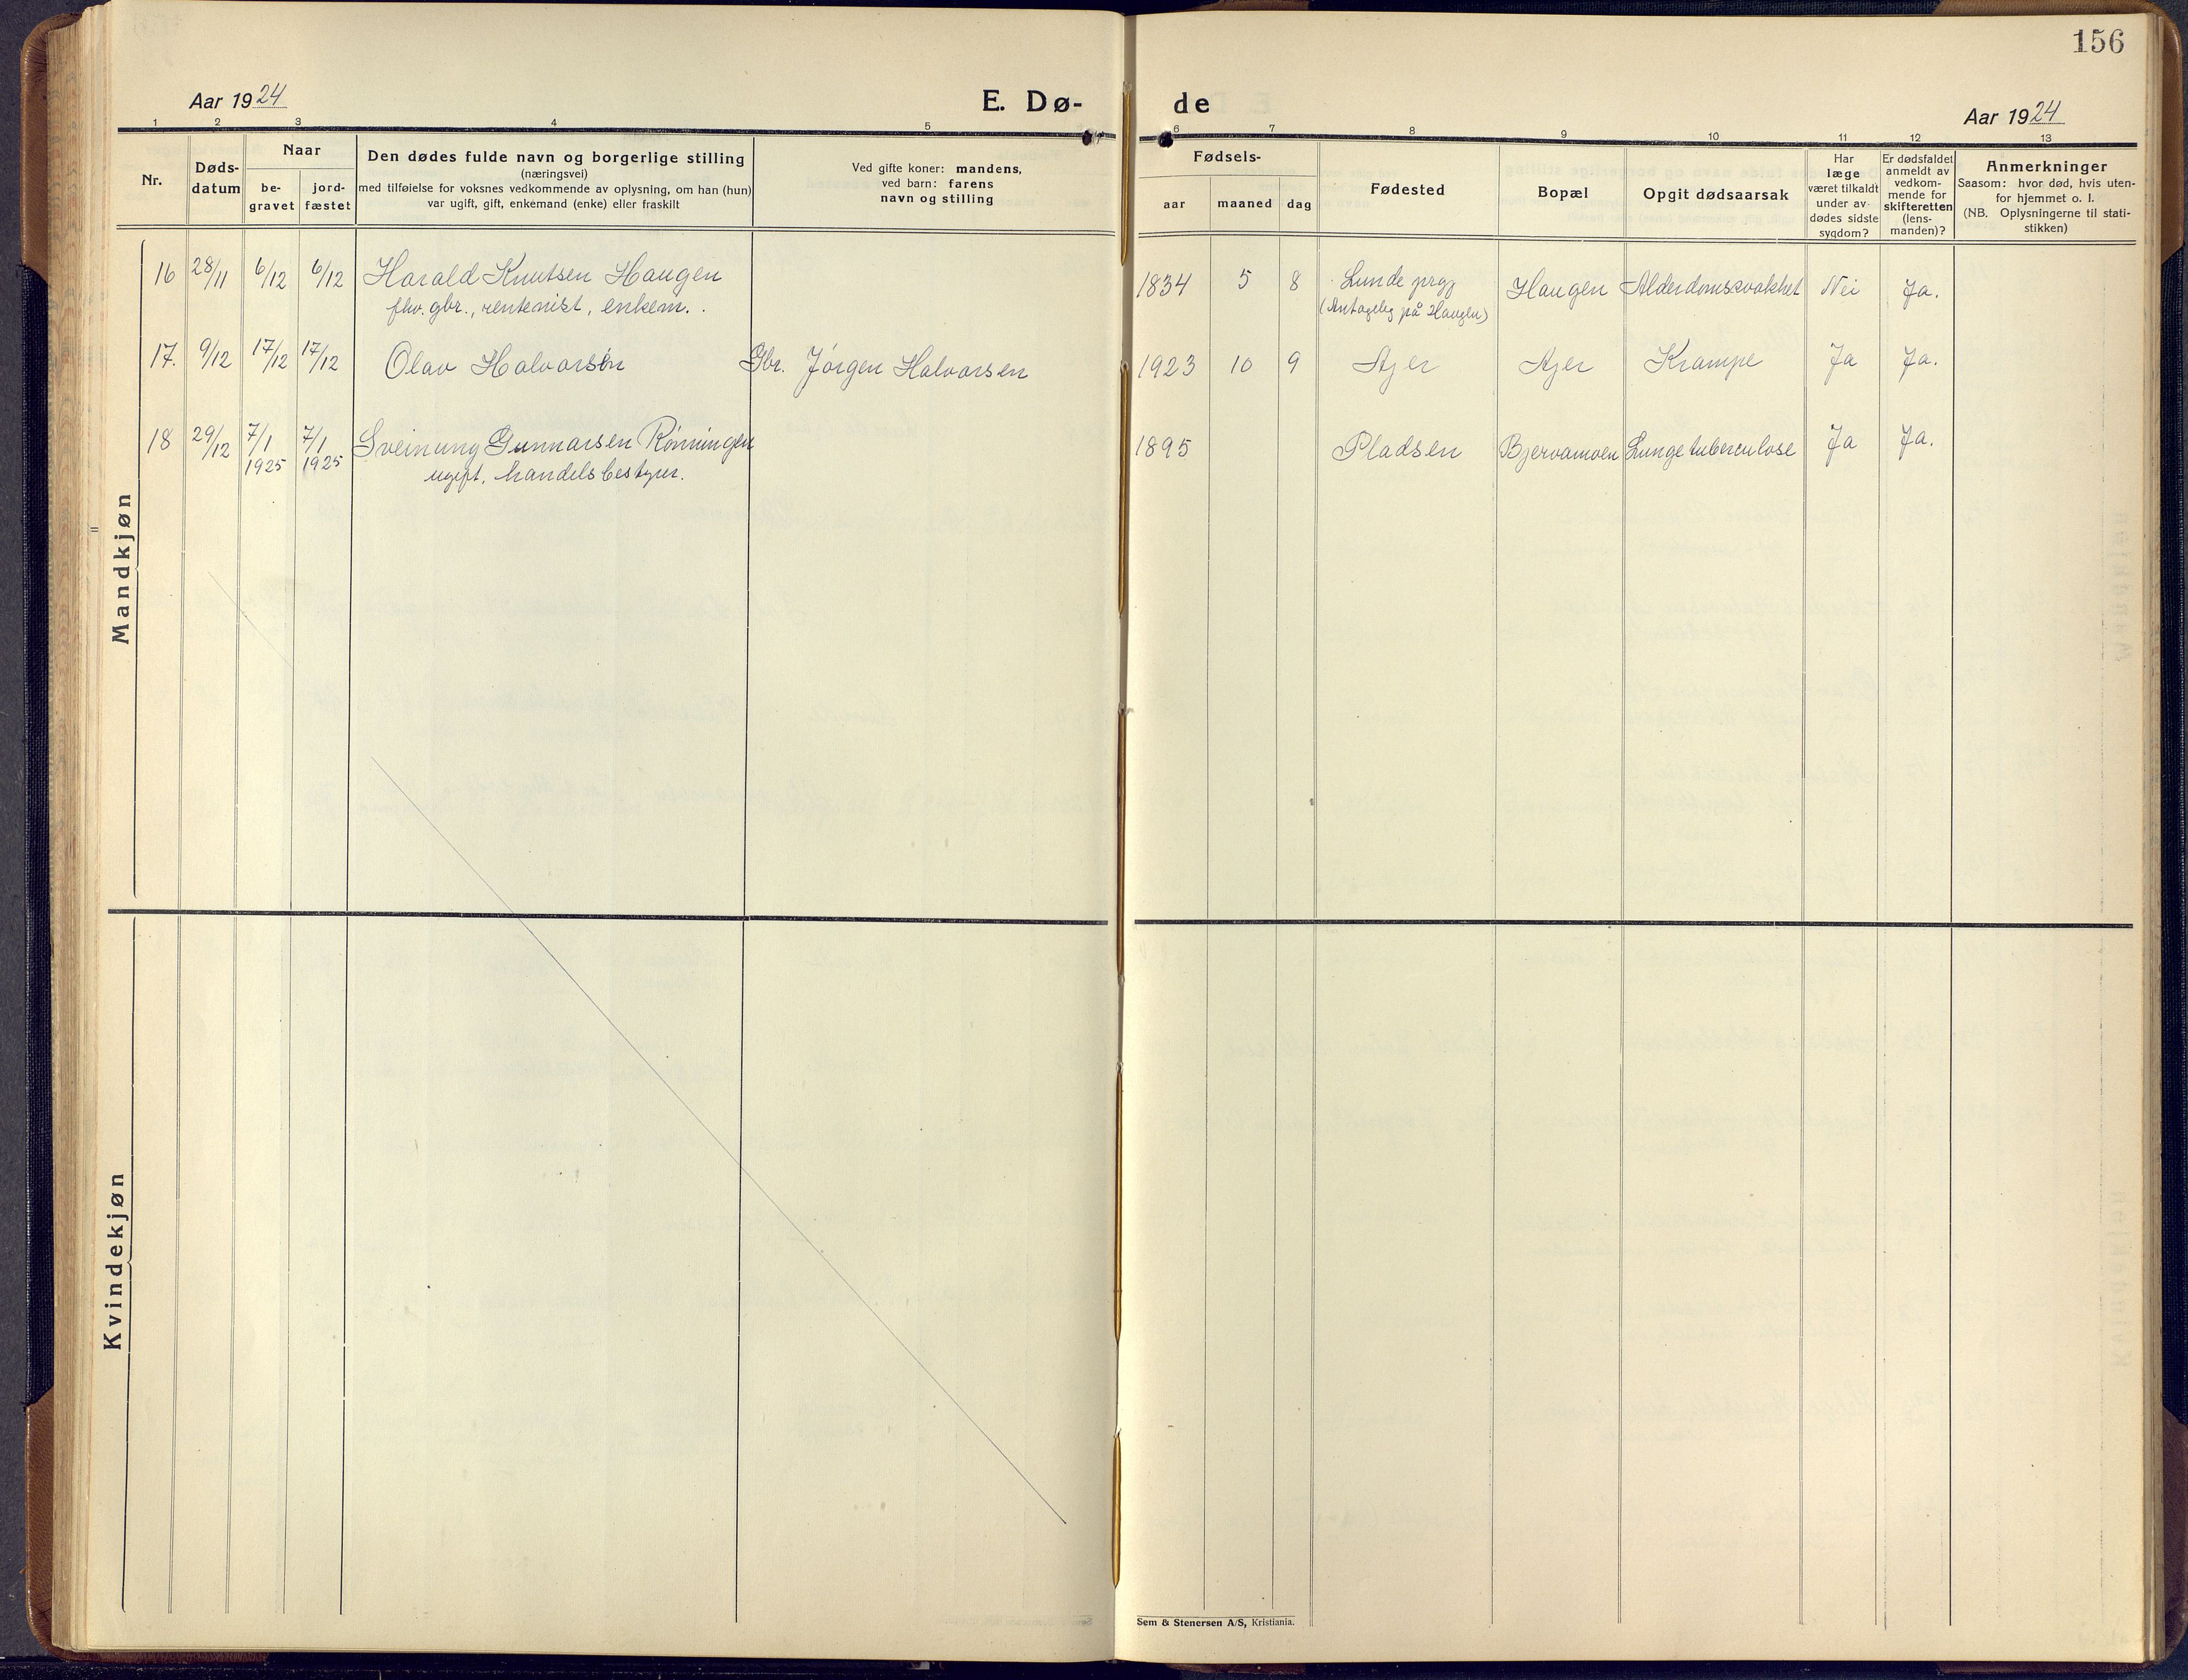 156
Aar 1924
E. Dø-
de
Aar 1924
1 2 3 4 5 6 7 8 9 10 11 12 13
Nr.
Døds-
datum
Naar
be-
gravet
jord-
fæstet
Den dødes fulde navn og borgerlige stilling
(næringsvei)
med tilføielse for voksnes vedkommende av oplysning, om han (hun)
var ugift, gift, enkemand (enke) eller fraskilt
Ved gifte koner: mandens,
ved barn: farens
navn og stilling
Fødsels-
aar maaned dag
Fødested
Bopæl
Opgit dødsaarsak
Har
læge
været tilkaldt
under av-
dødes sidste
sygdom?
Er dødsfaldet
anmeldt av
vedkom-
mende for
skifteretten
(lens-
manden)?
Anmerkninger
Saasom: hvor død, hvis uten-
for hjemmet o. l.
(NB. Oplysningerne til stati-
stikken)
Mandkjøn
16 28/11 6/12 6/12 Harald Knutsen Haugen 1834 5 8 Lunde prgj Haugen Alderdomssvakhet Nei Ja.
fhv. gbr., rentenist, enkem. (Antagelig på Haugen)
17. 9/12 17/12 17/12 Olav Halvorsen Gbr. Jörgen Halvorsen 1923 10 9 Krampe Ja Ja.
18 29/12 7/1 1925 7/1 1925 Sveinung Gunnarsen Rönningen 1895 Pladsen Bjervamoen Lungetuberculose Ja Ja.
ugift, handelsbestyrer.
Kvindekjøn
Sem & Stenersen A/S, Kristiania.